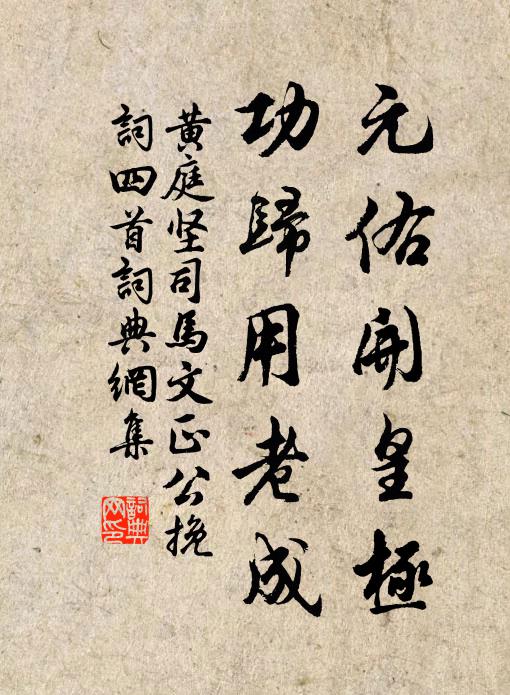 元佑開皇極
功歸用老成
黄庭坚司馬文正公挽
詞四首詞典網集
詞典
网印